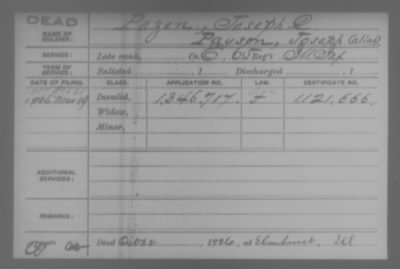 DEAD
NAME OF SOLDIER: Pazen, Joseph C
Payson, Joseph (alias)
SERVICE: Late rank, Co. C, 65 Reg't Ill Inf
TERM OF SERVICE: Enlisted , 1 Discharged , 1
DATE OF FILING. CLASS. APPLICATION NO. LAW. CERTIFICATE NO.
1906 Nov 19 Invalid, 1,346,717. 1,121,666.
Widow,
Minor,
ADDITIONAL SERVICES:
REMARKS:
Died Oct 22, 1926, at Elmhurst, Ill